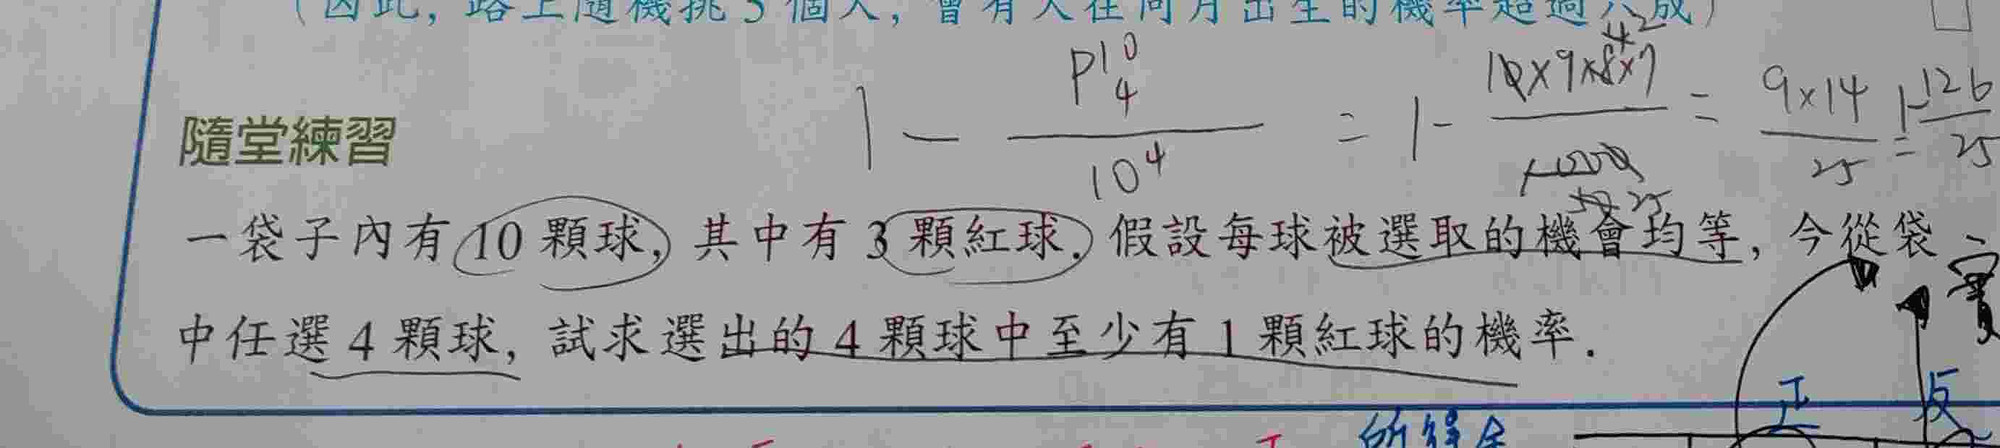 (因此, 路上隨機挑5個人, 會有人在同月出生的機率超過六成)
隨堂練習
1 - P^10_4 / 10^4 = 1 - 10×9×8×7 / = 9×14 / 25 = 1-126 / 25
一袋子內有10顆球, 其中有3顆紅球. 假設每球被選取的機會均等, 今從袋
中任選4顆球, 試求選出的4顆球中至少有1顆紅球的機率.
正 反